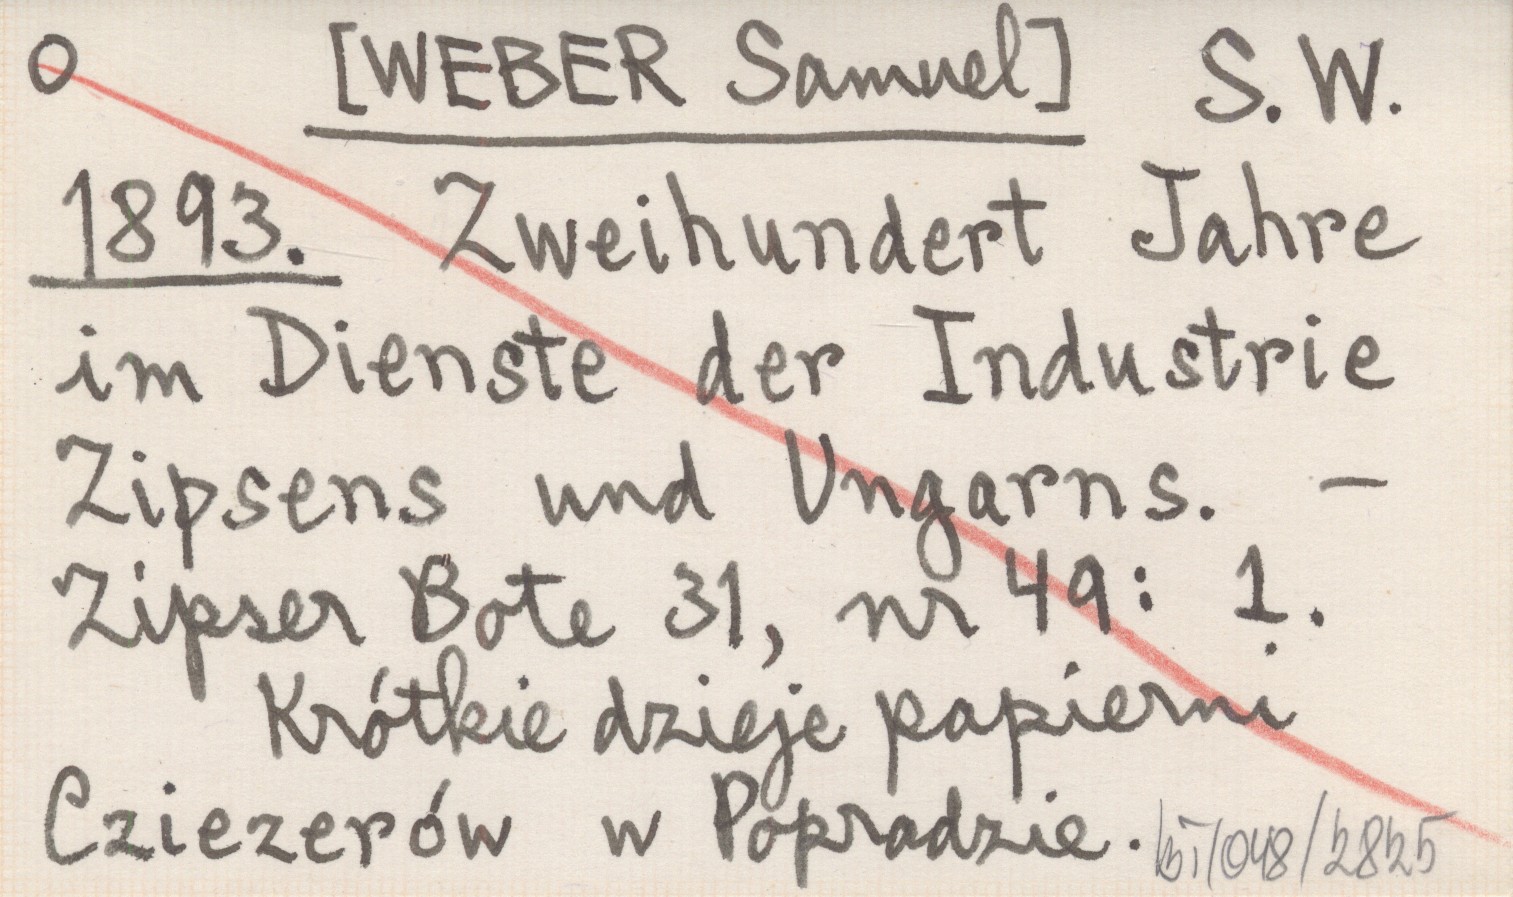 O [WEBER Samuel] S. W.
1893. Zweihundert Jahre
im Dienste der Industrie
Zipsens und Ungarns. –
Zipser Bote 31, nr 49: 1.
Krótkie dzieje papierni
Cziezerów w Popradzie.
/048/2825